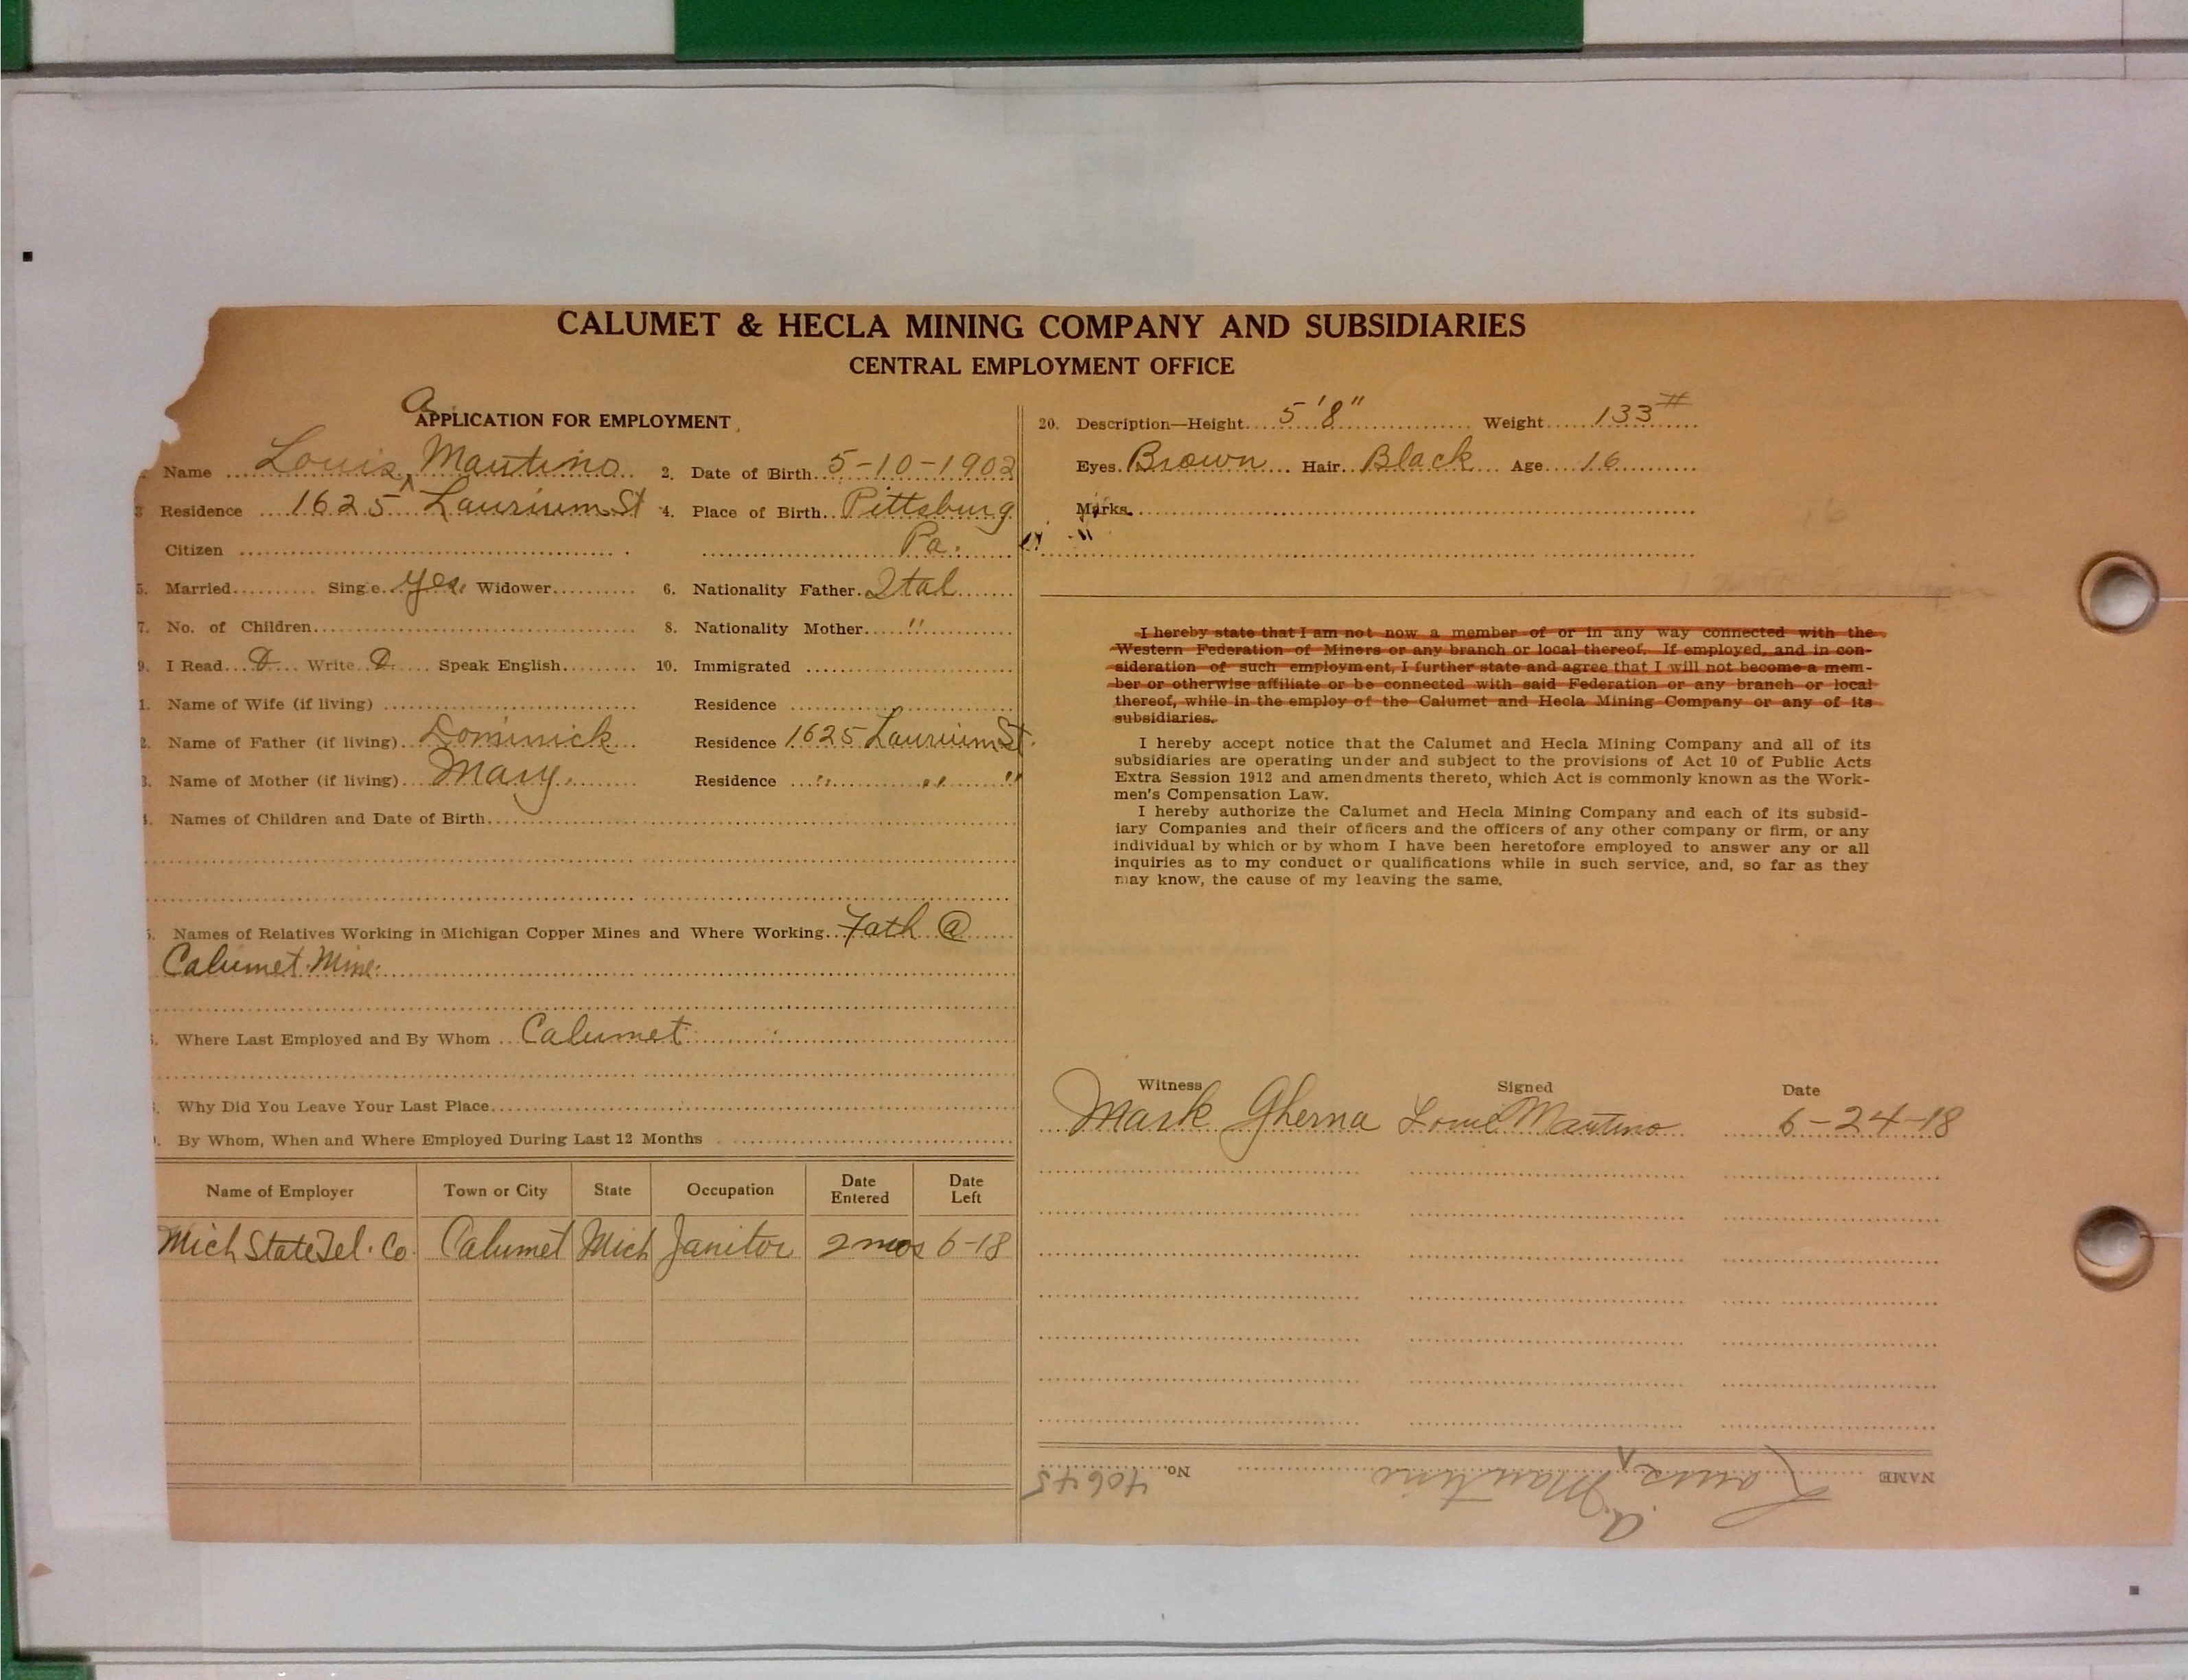 CALUMET & HECLA MINING COMPANY AND SUBSIDIARIES
CENTRAL EMPLOYMENT OFFICE
APPLICATION FOR EMPLOYMENT
Name Louis A Mautino 2. Date of Birth 5-10-1902
3 Residence 1625 Laurium St 4. Place of Birth Pittsburg
Citizen Pa.
5. Married Single yes Widower 6. Nationality Father Ital
7. No. of Children 8. Nationality Mother "
9. I Read Write Speak English 10. Immigrated
1. Name of Wife (if living) Residence
2. Name of Father (if living) Dominick Residence 1625 Laurium St.
3. Name of Mother (if living) Mary. Residence " " "
4. Names of Children and Date of Birth
5. Names of Relatives Working in Michigan Copper Mines and Where Working Fath @
Calumet Mine
Where Last Employed and By Whom Calumet
Why Did You Leave Your Last Place
By Whom, When and Where Employed During Last 12 Months
Name of Employer Town or City State Occupation Date Entered Date Left
Mich State Tel. Co. Calumet Mich Janitor 2 mos 6-18
20. Description—Height 5'8" Weight 133 #
Eyes Brown Hair Black Age 16
Marks
I hereby state that I am not now a member of or in any way connected with the
Western Federation of Miners or any branch or local thereof. If employed, and in con-
sideration of such employment, I further state and agree that I will not become a mem-
ber or otherwise affiliate or be connected with said Federation or any branch or local
thereof, while in the employ of the Calumet and Hecla Mining Company or any of its
subsidiaries.
I hereby accept notice that the Calumet and Hecla Mining Company and all of its
subsidiaries are operating under and subject to the provisions of Act 10 of Public Acts
Extra Session 1912 and amendments thereto, which Act is commonly known as the Work-
men's Compensation Law.
I hereby authorize the Calumet and Hecla Mining Company and each of its subsid-
iary Companies and their officers and the officers of any other company or firm, or any
individual by which or by whom I have been heretofore employed to answer any or all
inquiries as to my conduct or qualifications while in such service, and, so far as they
may know, the cause of my leaving the same.
Witness Signed Date
Mark Gherna Louie Mautino 6-24-18
NAME Louis A. Mautino No. 40645